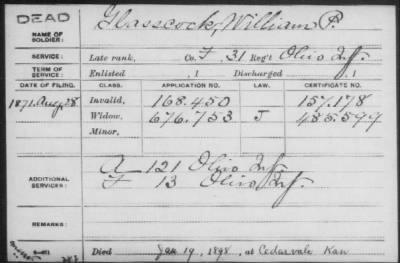 DEAD
NAME OF SOLDIER: Glasscock, William P.
SERVICE: Late rank, Co. F, 31 Reg't Ohio Inf.
TERM OF SERVICE: Enlisted , 1 Discharged , 1
DATE OF FILING. CLASS. APPLICATION NO. LAW. CERTIFICATE NO.
1871, Aug. 28 Invalid, 168.450 157.178
Widow, 676.753 J 485.599
Minor,
ADDITIONAL SERVICES: A 121 Ohio Inf.
F 13 Ohio Inf.
REMARKS:
Died Jan 19, 1898, at Cedarvale Kan